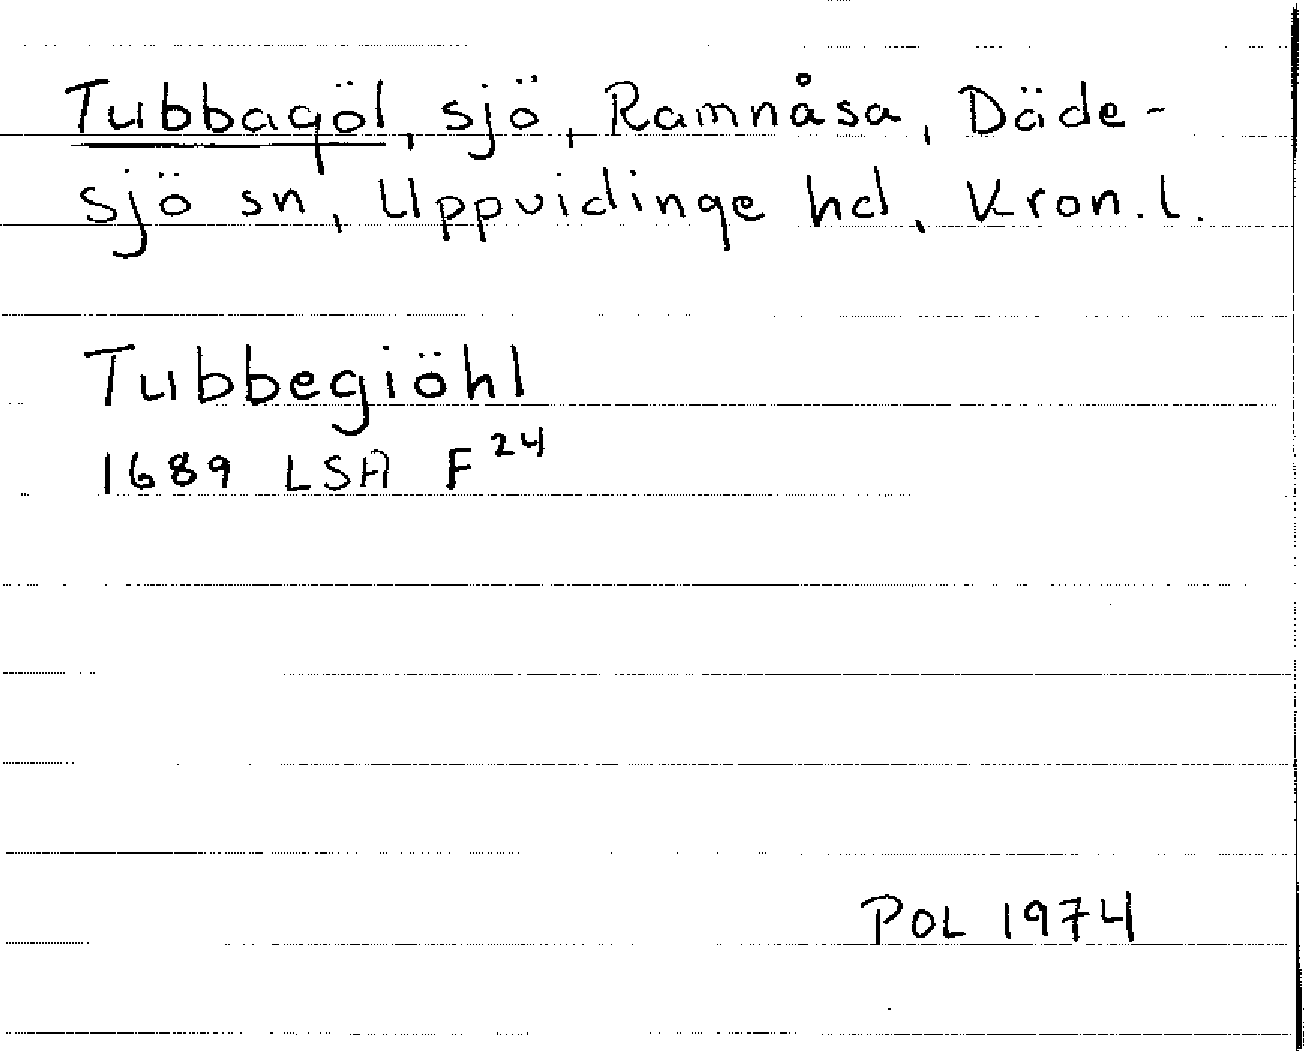 Tubbagöl, sjö, Ramnåsa, Däde-
sjö sn, Uppvidinge hd, Kron. l.
Tubbegiöhl
1689 LSA F 24
POL 1974